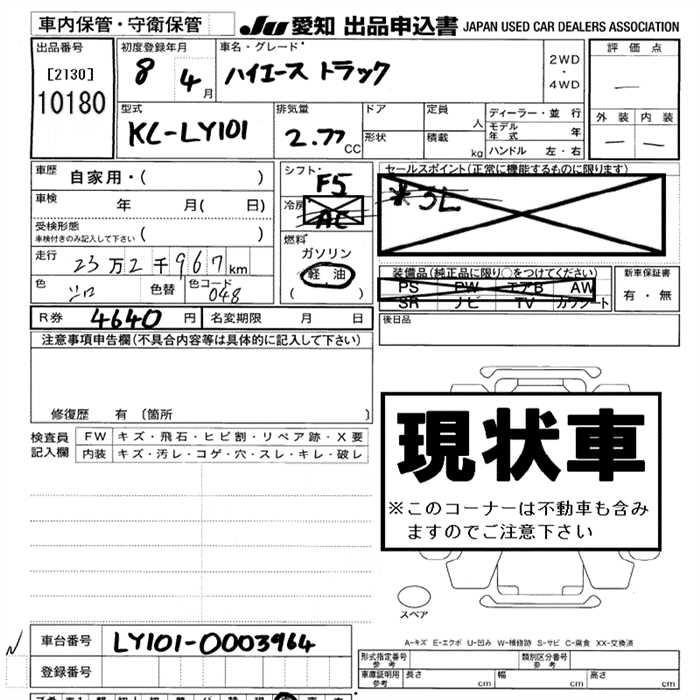 車内保管・守衛保管
JU 愛知 出品申込書 JAPAN USED CAR DEALERS ASSOCIATION
出品番号
[2130]
10180
初度登録年月
8 4月
車名・グレード
ハイエース トラック
2WD
・
4WD
評価点
—
外装 内装
— —
型式
KC-LY101
排気量
2.77 CC
ドア
形状
定員 人
積載 kg
ディーラー・並行
モデル年式 年
ハンドル 左・右
車歴 自家用・( )
車検 年 月( 日)
受検形態
車検付きのみ記入して下さい ( )
走行 23万2千967km
色 シロ 色替 色コード 048
シフト F5
冷房 AC
燃料
ガソリン
軽油
( )
セールスポイント(正常に機能するものに限ります)
* 5L
装備品(純正品に限り○をつけてください)
PS PW エアB AW
SR ナビ TV カワシート
新車保証書
有・無
R券 4640円 名変期限 月 日
後日品
注意事項申告欄(不具合内容等は具体的に記入して下さい)
修復歴 有 [箇所 ]
検査員記入欄
FW キズ・飛石・ヒビ割・リペア跡・X要
内装 キズ・汚レ・コゲ・穴・スレ・キレ・破レ
現状車
※このコーナーは不動車も含み
ますのでご注意下さい
スペア
A-キズ E-エクボ U-凹み W-補修跡 S-サビ C-腐食 XX-交換済
車台番号 LY101-0003964
登録番号
形式指定番号 参考
類別区分番号 参考
車庫証明用 参考 長さ cm 幅 cm 高さ cm